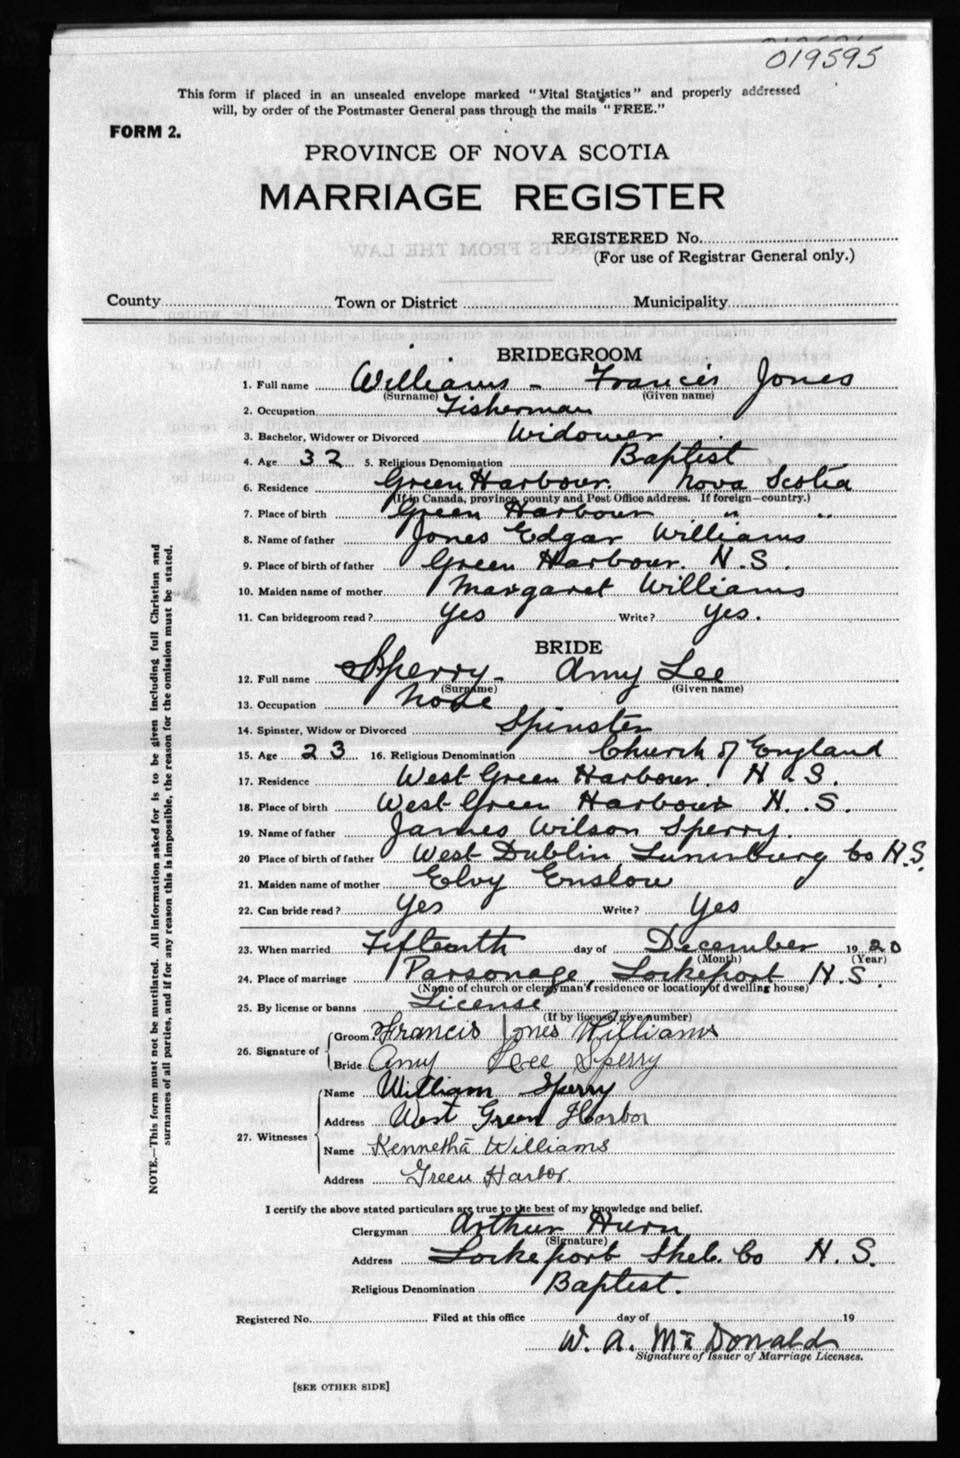 019595
This form if placed in an unsealed envelope marked "Vital Statistics" and properly addressed
will, by order of the Postmaster General pass through the mails "FREE."
FORM 2.
PROVINCE OF NOVA SCOTIA
MARRIAGE REGISTER
REGISTERED No.
(For use of Registrar General only.)
County Town or District Municipality
BRIDEGROOM
1. Full name Williams - Francis Jones
(Surname) (Given name)
2. Occupation Fisherman
3. Bachelor, Widower or Divorced Widower
4. Age 32 5. Religious Denomination Baptist
6. Residence Green Harbour. Nova Scotia
(If in Canada, province, county and Post Office address. If foreign—country.)
7. Place of birth Green Harbour " "
8. Name of father Jones Edgar Williams
9. Place of birth of father Green Harbour. N.S.
10. Maiden name of mother Margaret Williams
11. Can bridegroom read? Yes Write? Yes.
BRIDE
12. Full name Sperry - Amy Lee
(Surname) (Given name)
13. Occupation None
14. Spinster, Widow or Divorced Spinster
15. Age 23 16. Religious Denomination Church of England
17. Residence West Green Harbour. N.S.
18. Place of birth West Green Harbour N.S.
19. Name of father James Wilson Sperry.
20 Place of birth of father West Dublin, Lunenburg Co N.S.
21. Maiden name of mother Elvy Enslow
22. Can bride read? Yes Write? Yes
23. When married Fifteenth day of December 1920
(Month) (Year)
24. Place of marriage Parsonage, Lockeport N.S.
(Name of church or clergyman's residence or location of dwelling house)
25. By license or banns License
(If by license, give number)
26. Signature of Groom Francis Jones Williams
Bride Amy Lee Sperry
27. Witnesses Name William Sperry
Address West Green Harbor
Name Kennetha Williams
Address Green Harbor.
I certify the above stated particulars are true to the best of my knowledge and belief.
Clergyman Arthur Hurn
(Signature)
Address Lockeport Shel. Co N.S.
Religious Denomination Baptist.
Registered No. Filed at this office day of 19
W. A. McDonald
Signature of Issuer of Marriage Licenses.
[SEE OTHER SIDE]
NOTE.—This form must not be mutilated. All information asked for is to be given including full Christian and
surnames of all parties, and if for any reason this is impossible, the reason for the omission must be stated.